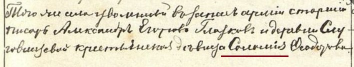 Того же села уволенный въ запасъ арміи старшій
писарь Александръ Егоровъ Глазковъ и деревни
крестьянская дѣвица Соломія Ѳеодорова